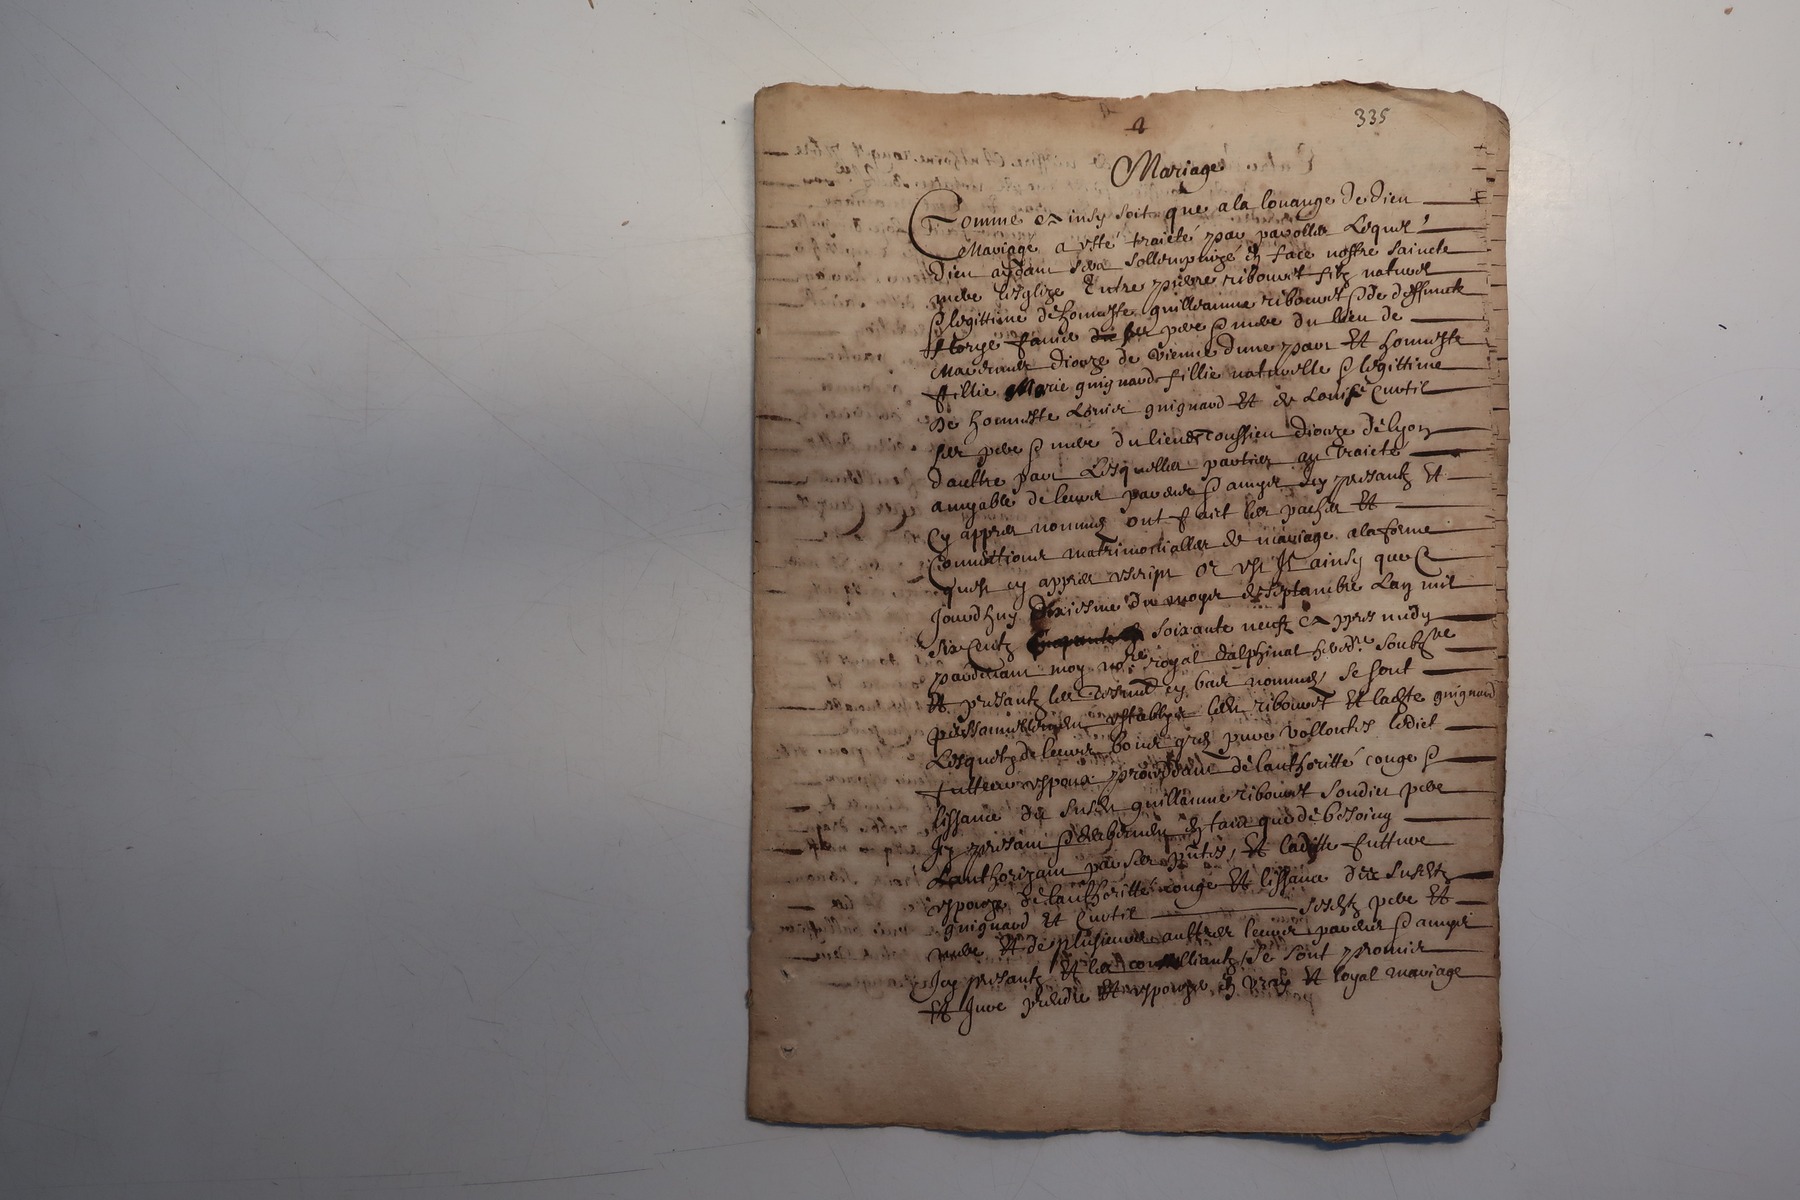 335
Mariage
Comme ainsy soit que a la louange de dieu
Mariage a esté traicté par parolles Lequel
dieu aydant sera sollempnizé en face nostre saincte
mere lesglize Entre pierre ribouest filz naturel
& legittime de honneste guillaume ribouest & de deffuncte
ses pere & mere du lieu de
dioceze de vienne dune part Et honneste
fillie Marie guignard fillie naturelle & legittime
de honneste guignard Et de Louise Curtil
ses pere & mere du lieu de coussieu dioceze de lyon
daultre part Lesquelles parties au traicté
amyable de leurs parens & amys Icy presantz Et
Cy appres nommes ont faict les paches Et
Conventions matrimonialles de mariage a la forme
que cy appres escript or est Il ainsy que ce
Jourdhuy dixiesme du moys de septambre Lan mil
six centz soixante neufz appres midy
pardevant moy no.re royal dalphinal soubz.ne
Et presantz les tesmoingz en bas nommes se sont
establys led. ribouest Et ladite guignard
Lesquelz de leurs bons gres pure vollontés ledict
futteur espoux de lauthoritté conge &
lissance du susd. guillaume ribouest sondict pere
Icy presant & en tant que de besoing
Lauthorizant par ses p.ntes, Et laditte futture
espouze de lauthoritté conge Et lissance des susdtz
guignard Et Curtil sesdtz pere Et
mere Et de plusieurs aultres leurs parens & amys
Icy presantz Et les conseilliantz, se sont promis
Et Jure prendre Et espouzer en vray Et loyal mariage